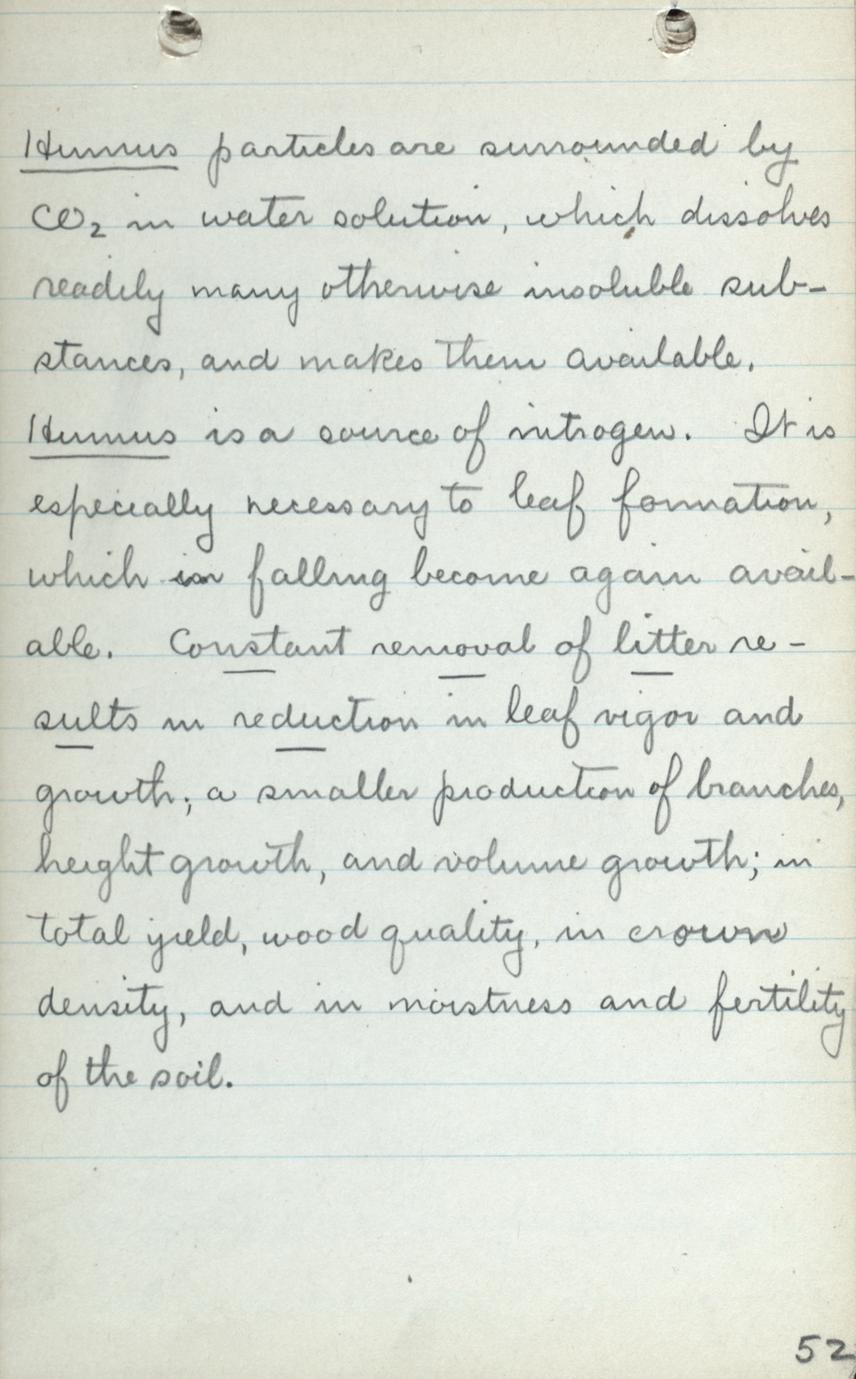 Humus particles are surrounded by
CO₂ in water solution, which dissolves
readily many otherwise insoluble sub-
stances, and makes them available.
Humus is a source of nitrogen. It is
especially necessary to leaf formation,
which in falling become again avail-
able. Constant removal of litter re-
sults in reduction in leaf vigor and
growth; a smaller production of branches,
height growth, and volume growth; in
total yield, wood quality, in crown
density, and in moistness and fertility
of the soil.
52